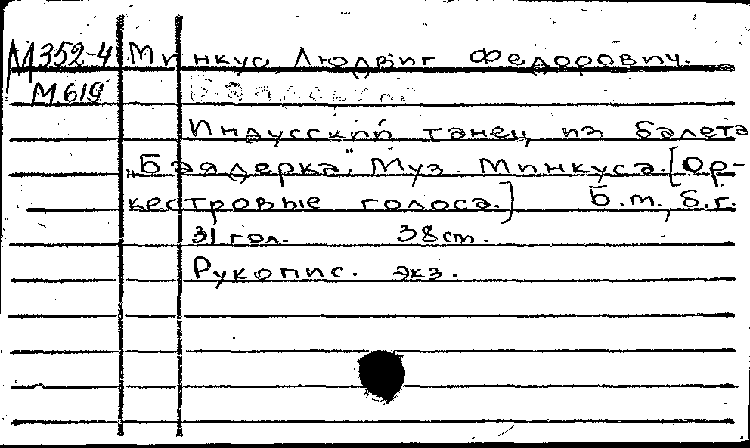 М352-4 Минкус, Людвиг Федорович.
М619 Баядерка
Индусский танец из балета
„Баядерка". Муз. Минкуса. [Ор-
кестровые голоса.] Б.т., б.г.
31 гол. 38 ст.
Рукопис. экз.